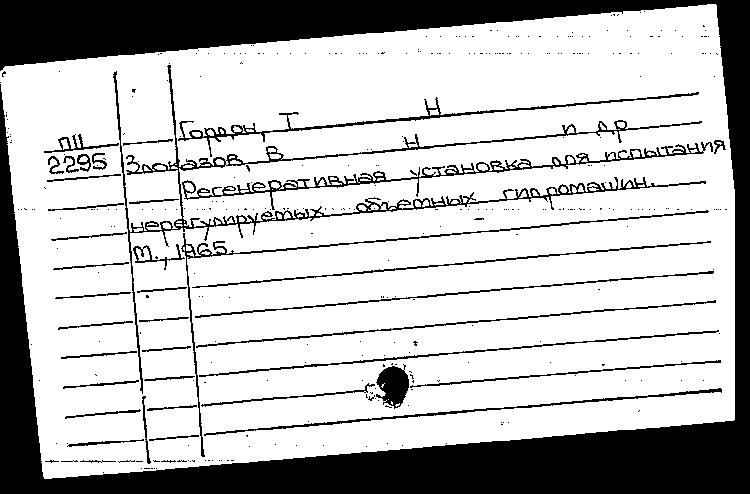 П11 Гордон, Т Н
2295 Злоказов, В Н и др
Регенеративная установка для испытания
нерегулируемых объемных гидромашин.
М., 1965.